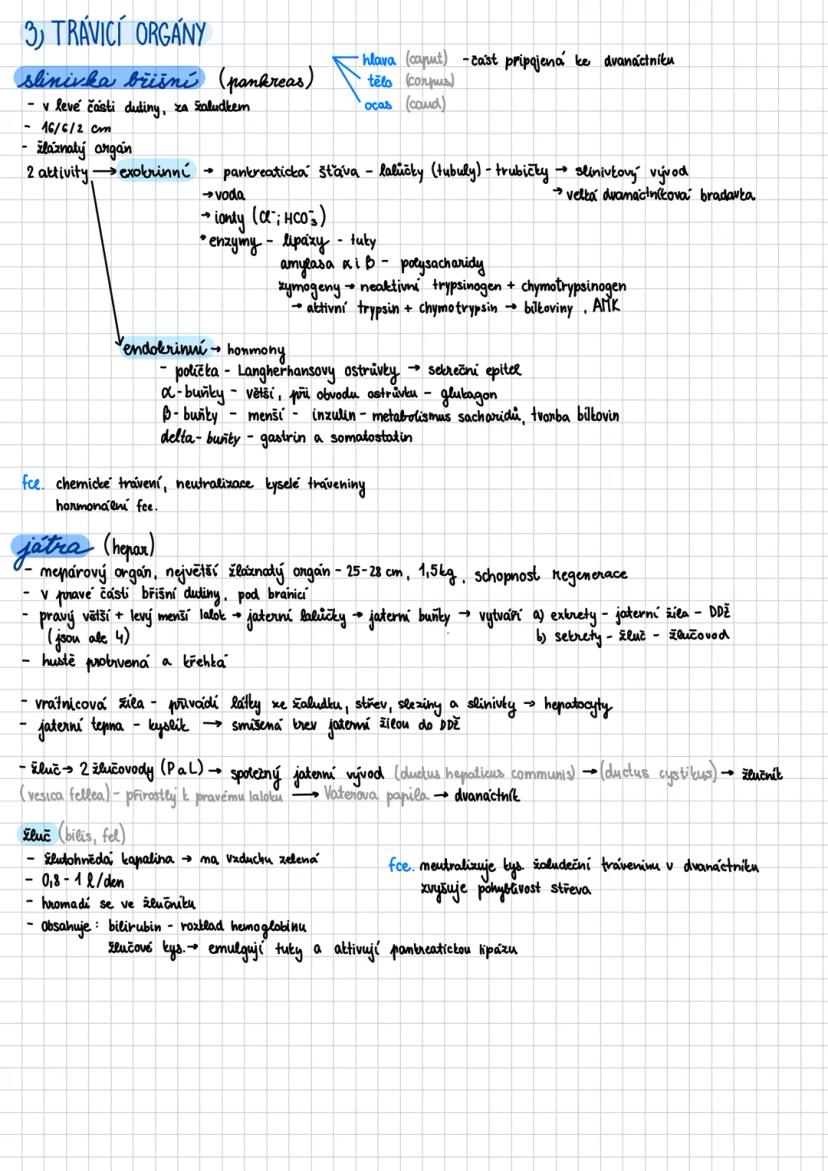 3, TRÁVICÍ ORGÁNY
slinivka břišní (pankreas)
hlava (caput) - část připojená ke dvanáctníku
tělo (corpus)
ocas (caud)
- v levé části dutiny, za žaludkem
- 16/6/2 cm
- žláznatý orgán
2 aktivity → exokrinní → pankreatická šťáva - lalůčky (tubuly) - trubičky → slinivkový vývod
→ voda → velká dvanáctníková bradavka
→ ionty (Cl⁻; HCO₃⁻)
* enzymy - lipázy - tuky
amylasa α i β - polysacharidy
zymogeny → neaktivní trypsinogen + chymotrypsinogen
→ aktivní trypsin + chymotrypsin → bílkoviny, AMK
endokrinní → hormony
- políčka - Langherhansovy ostrůvky → sekreční epitel
α-buňky - větší, při obvodu ostrůvku - glukagon
β-buňky - menší - inzulin - metabolismus sacharidů, tvorba bílkovin
delta-buňky - gastrin a somatostatin
fce. chemické trávení, neutralizace kyselé tráveniny
hormonální fce.
játra (hepar)
- nepárový orgán, největší žláznatý orgán - 25-28 cm, 1,5kg, schopnost regenerace
- v pravé části břišní dutiny, pod bránicí
- pravý větší + levý menší lalok → jaterní lalůčky → jaterní buňky → vytváří a) exkrety - jaterní žíla - DDŽ
(jsou ale 4) b) sekrety - žluč - žlučovod
- hustě prokrvená a křehká
- vrátnicová žíla - přivádí látky ze žaludku, střev, sleziny a slinivky → hepatocyty
- jaterní tepna - kyslík → smíšená krev jaterní žílou do DDŽ
- žluč → 2 žlučovody (P a L) → společný jaterní vývod (ductus hepaticus communis) → (ductus cystikus) → žlučník
(vesica fellea) - přirostlý k pravému laloku → Vaterova papila → dvanáctník
žluč (bilis, fel)
- žlutohnědá kapalina → na vzduchu zelená
- 0,8 - 1 l/den
- hromadí se ve žlučníku
- obsahuje: bilirubin - rozklad hemoglobinu
žlučové kys. → emulgují tuky a aktivují pankreatickou lipázu
fce. neutralizuje kys. žaludeční tráveninu v dvanáctníku
zvyšuje pohyblivost střeva